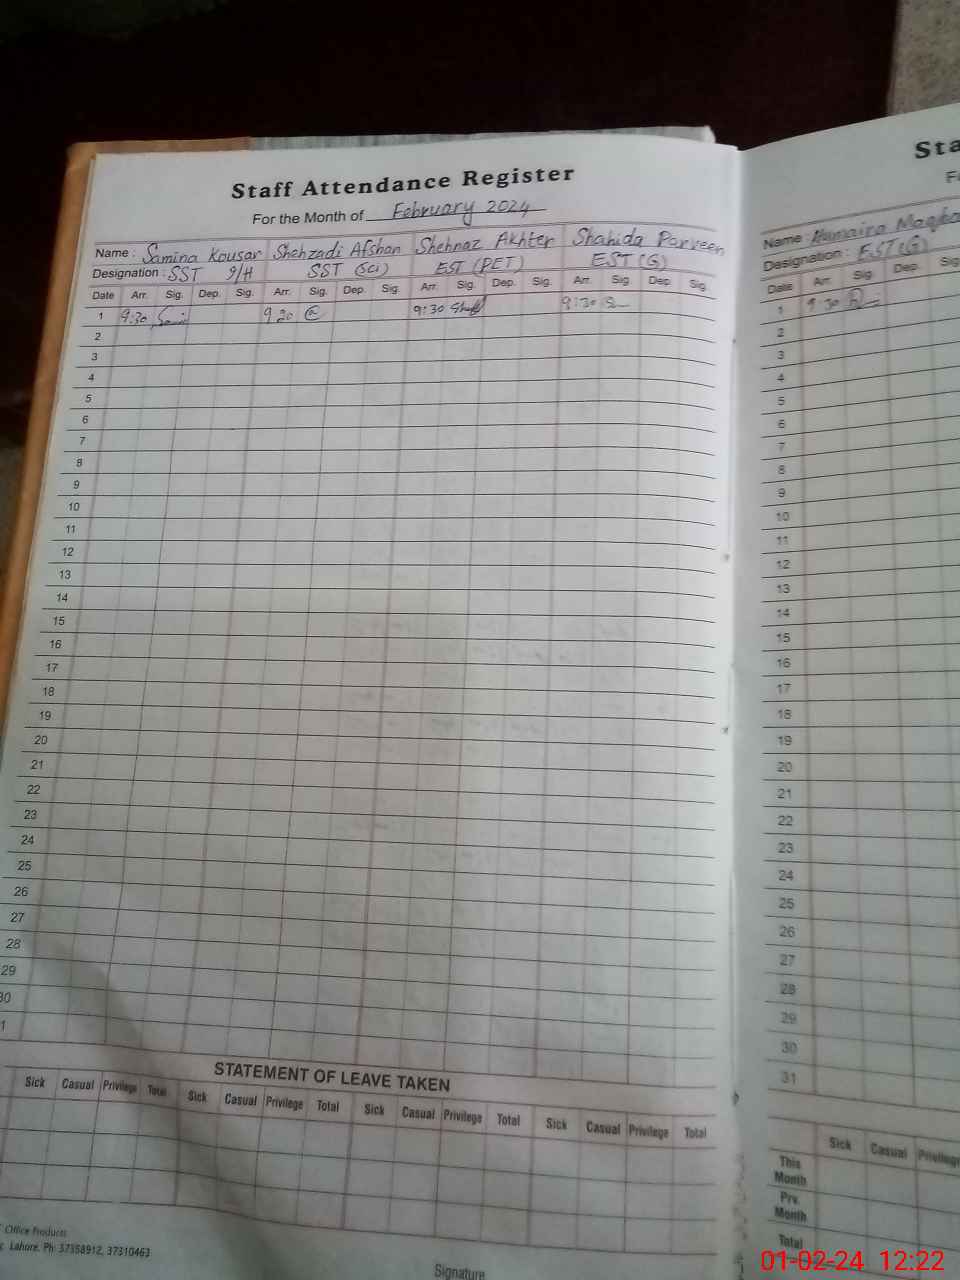 Staff Attendance Register
For the Month of February 2024
Name : Samina Kousar Shehzadi Afshan Shehnaz Akhter Shahida Parveen
Designation : SST 9/H SST (Sci) EST (PET) EST (G)
Date Arr. Sig. Dep. Sig. Arr. Sig. Dep. Sig. Arr. Sig. Dep. Sig. Arr. Sig Dep. Sig.
1 9:30 9 20 9:30 9:30
2
3
4
5
6
7
8
9
10
11
12
13
14
15
16
17
18
19
20
21
22
23
24
25
26
27
28
29
30
1
STATEMENT OF LEAVE TAKEN
Sick Casual Privilege Total Sick Casual Privilege Total Sick Casual Privilege Total Sick Casual Privilege Total
Office Products
Lahore. Ph: 37358912, 37310463
Signature
Sta
F
Name : Humaira Maqbo
Designation : EST (G)
Date Arr. Sig. Dep. Sig
1 9:30
2
3
4
5
6
7
8
9
10
11
12
13
14
15
16
17
18
19
20
21
22
23
24
25
26
27
28
29
30
31
Sick Casual Privilege
This
Month
Prv.
Month
Total
01-02-24 12:22